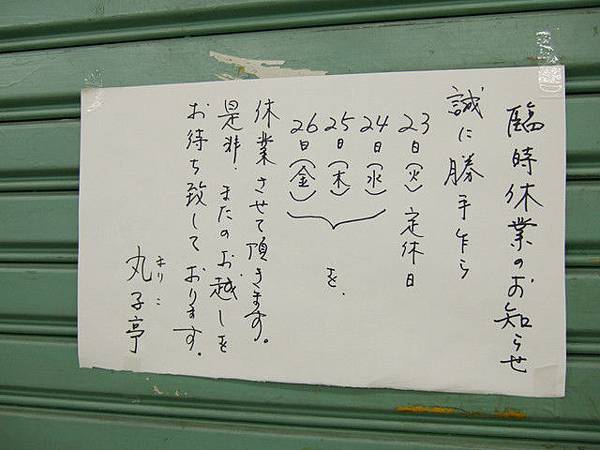 臨時休業のお知らせ
誠に勝手乍ら
23日(火)定休日
24日(水)
25日(木)
26日(金)
を、
休業させて頂きます。
是非、またのお越しを
お待ち致しております。
まりこ
丸子亭